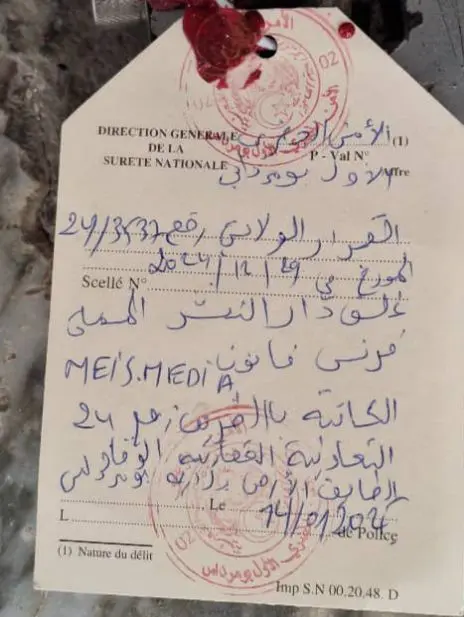 DIRECTION GENERALE
DE LA
SURETE NATIONALE
الأمن الحضري
(1)
P - Val N°
الأول بومرداس
القرار الولائي رقم 24/3537
المؤرخ في 29/12/2024
Scellé N°
غلق دار النشر المسماة
فرنس فانون
MEIS.MEDIA
الكائنة بـ رقم 24
التعاونية العقارية
الطابق الأرضي بومرداس
Le
L
de Police
(1) Nature du délit
Imp S.N 00.20.48. D